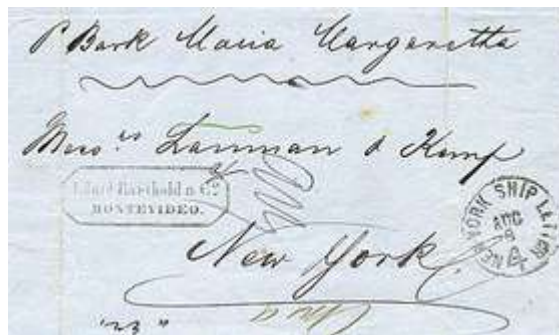 P Bark Maria Margaretha
Mess.rs Lanman & Kemp
& Co
MONTEVIDEO.
NEW YORK SHIP LETTER
AUG
4
New York